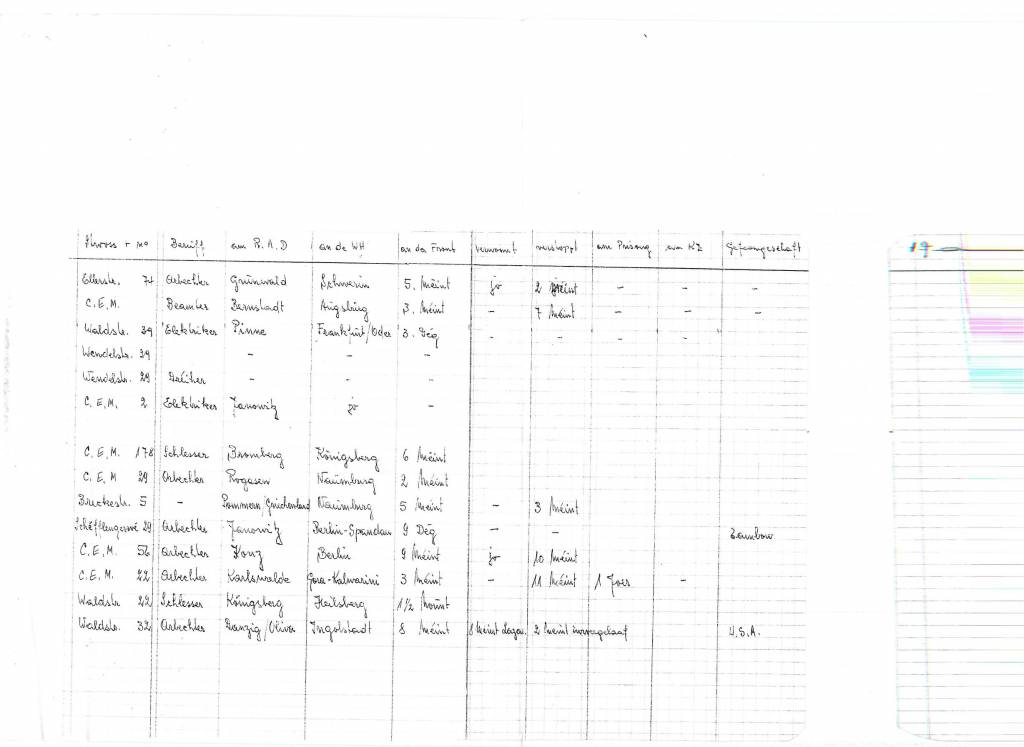 Strooss + No Beruff am R.A.D an de WH an der Front verwonnt verstoppt am Prisong am KZ Gefaangeschaft
19
Ellerstr. 74 Arbechter Grünwald Schwerin 5. Méint jo 2 Méint - - -
C.E.M. Beamter Bernstadt Augsburg 3. Méint - 7 Méint - - -
Waldstr. 39 Elektriker Pinne Frankfurt/Oder 3. Deg - - - -
Wendelstr. 39 - - -
Wendelstr. 29 Dréiher - - -
C.E.M. 2 Elektriker Janowitz jo -
C.E.M. 178 Schlesser Bromberg Königsberg 6 Méint
C.E.M 29 Arbechter Rogasen Naumburg 2 Méint
Bruckestr. 5 - Pommern/Griichenland Naumburg 5 Méint - 3 Méint
29 Arbechter Janowitz Berlin-Spandau 9 Deg - - Tambow
C.E.M. 56 Arbechter Konz Berlin 9 Méint jo 10 Méint
C.E.M. 22 Arbechter Karlswalde Gora-Kalwarini 3 Méint - 11 Méint 1 Joer -
Waldstr 22 Schlesser Königsberg Heilsberg 1 1/2 Mount
Waldstr. 32 Arbechter Danzig/Oliva Ingolstadt 8 Méint 8 Méint 2 Méint U.S.A.